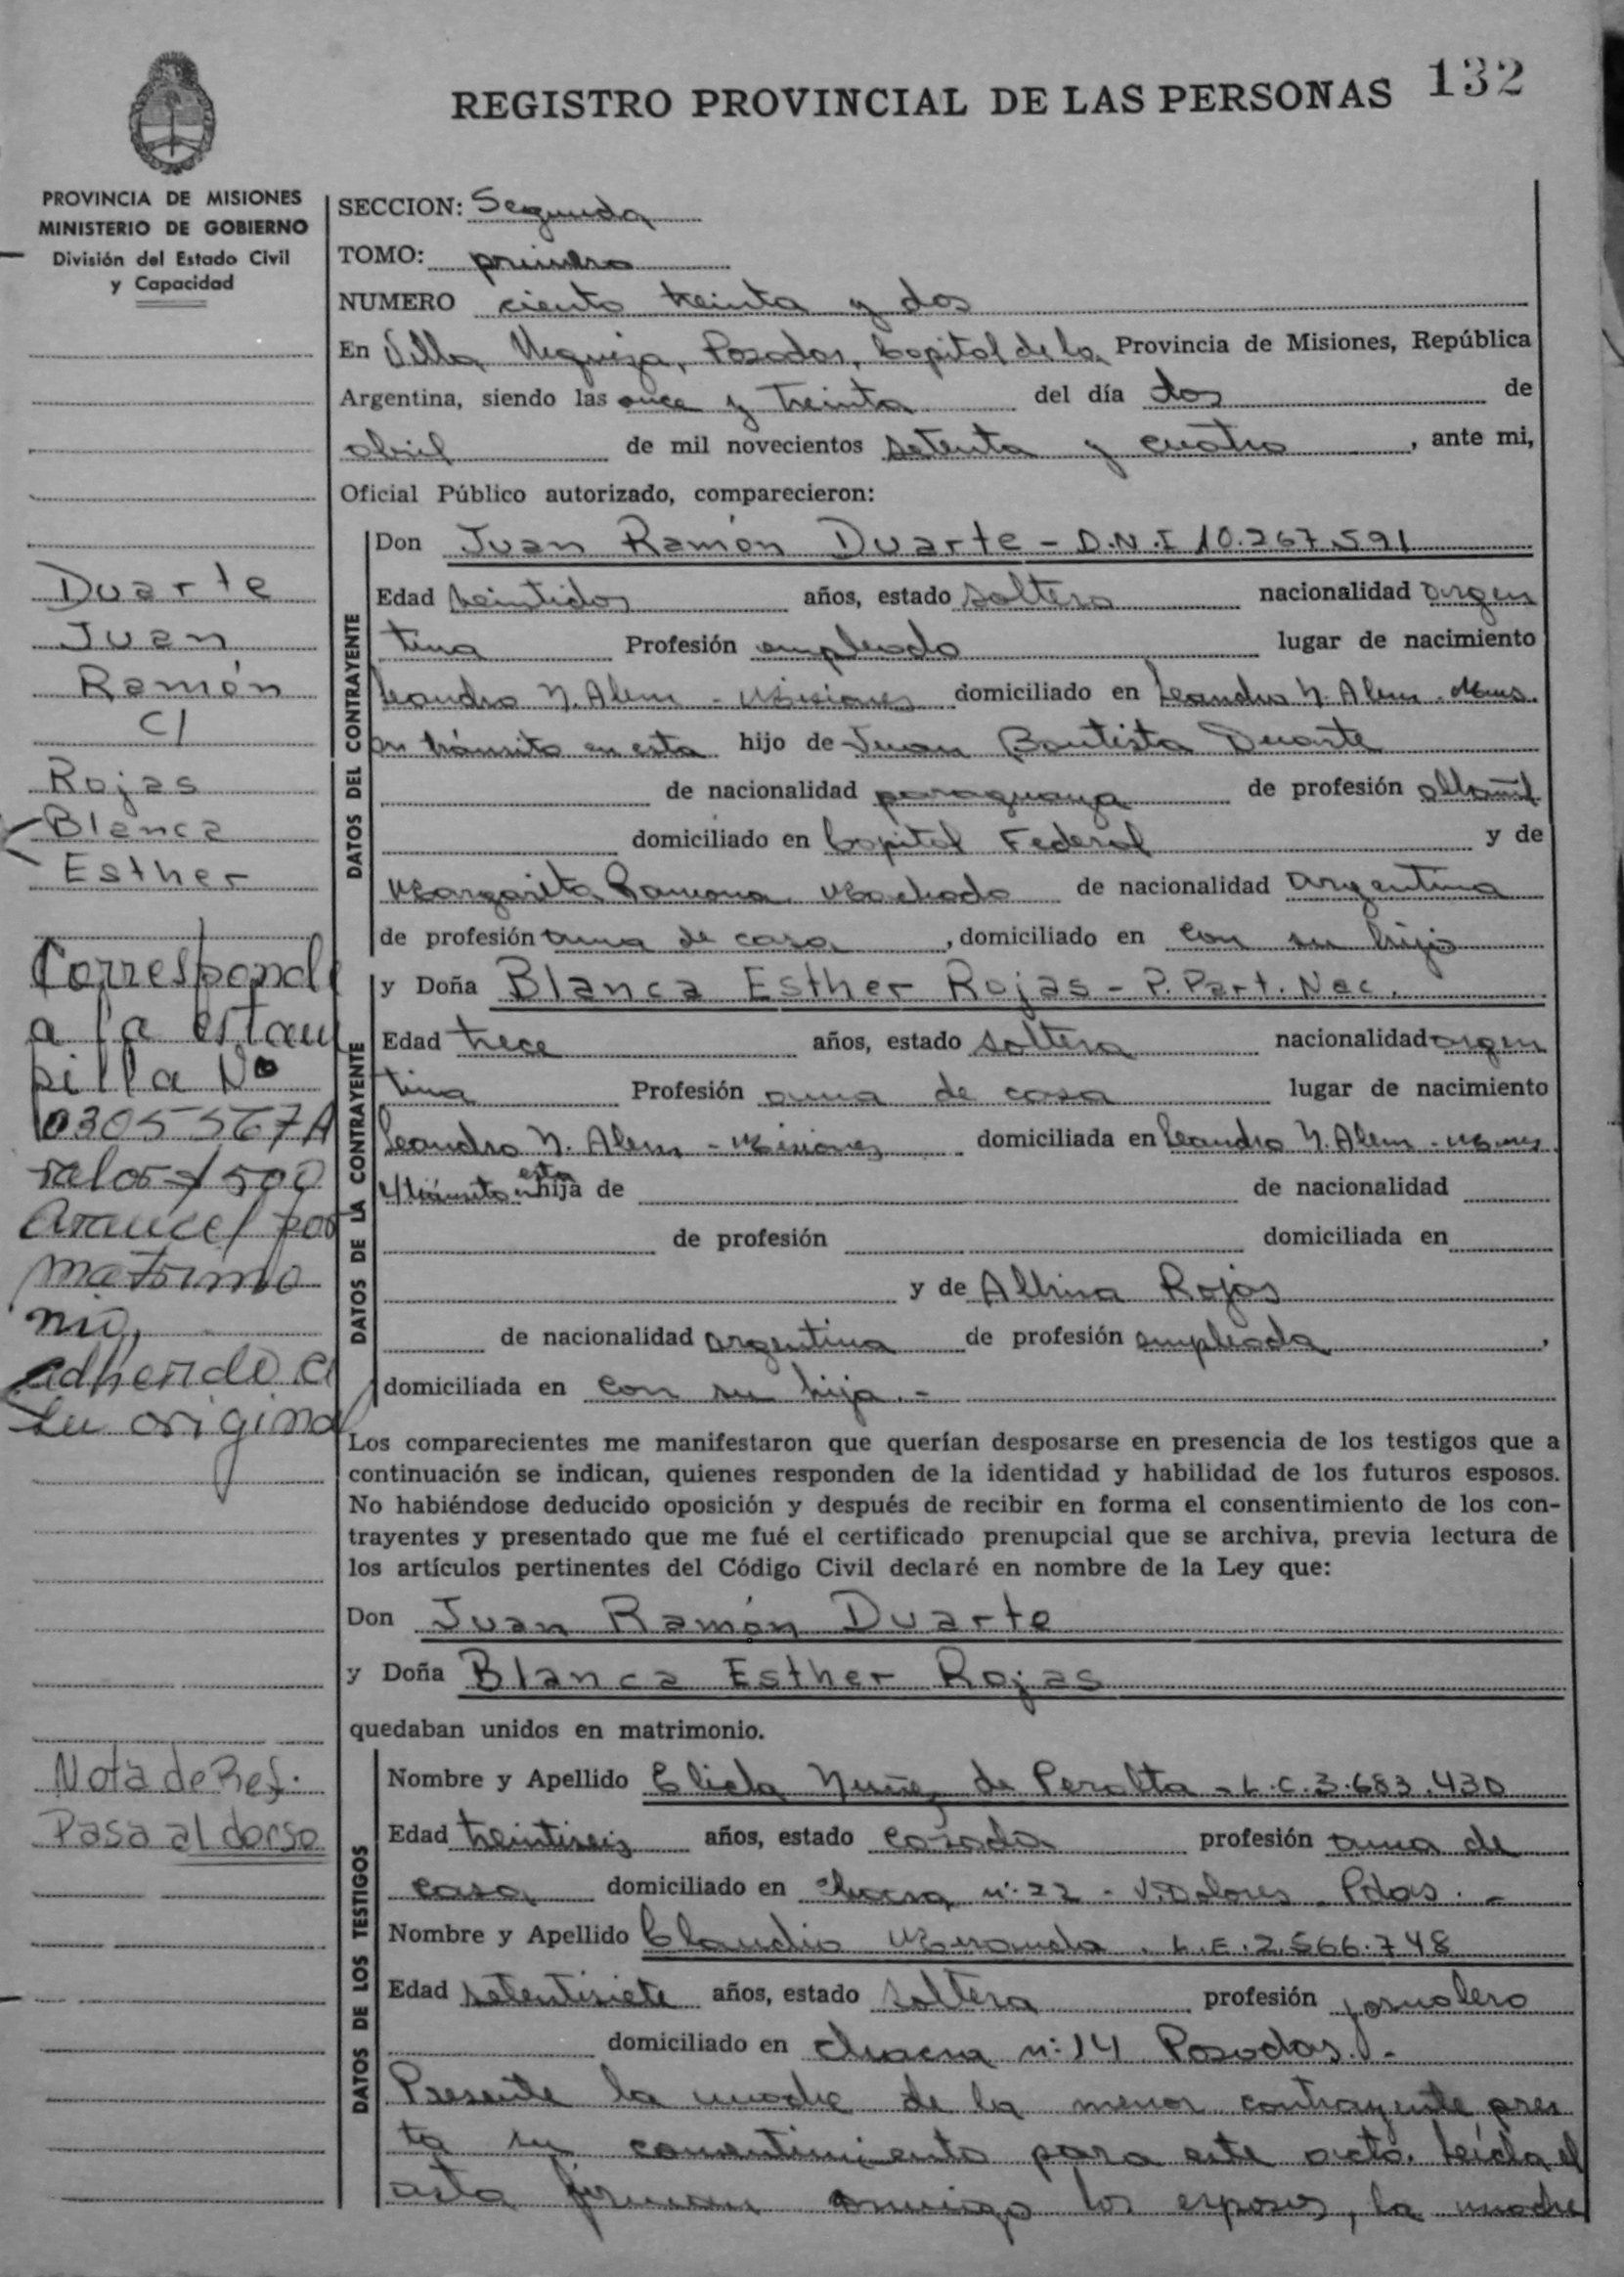 REGISTRO PROVINCIAL DE LAS PERSONAS 132
PROVINCIA DE MISIONES
MINISTERIO DE GOBIERNO
División del Estado Civil
y Capacidad
SECCION: Segunda
TOMO: primero
NUMERO ciento treinta y dos
En Villa Urquiza, Posadas, Capital de la Provincia de Misiones, República
Argentina, siendo las once y treinta del día dos de
abril de mil novecientos setenta y cuatro, ante mi,
Oficial Público autorizado, comparecieron:
Duarte
Juan
Ramón
C/
Rojas
Blanca
Esther
Corresponde
a la estam
pilla Nº
0305567A
valor $ 500
Arancel por
matrimo
nio,
adherido a
su original
Nota de Ref.
Pasa al dorso
DATOS DEL CONTRAYENTE
Don Juan Ramón Duarte - D.N.I 10.267.591
Edad veintidos años, estado soltero nacionalidad argen
tina Profesión empleado lugar de nacimiento
Leandro N. Alem - Misiones domiciliado en Leandro N. Alem - Mnes.
en tránsito en esta hijo de Juan Bautista Duarte
de nacionalidad paraguaya de profesión albañil
domiciliado en Capital Federal y de
Margarita Ramona Machado de nacionalidad argentina
de profesión ama de casa, domiciliado en con su hijo
DATOS DE LA CONTRAYENTE
y Doña Blanca Esther Rojas - P. Part. Nac.
Edad trece años, estado soltera nacionalidad argen
tina Profesión ama de casa lugar de nacimiento
Leandro N. Alem - Misiones domiciliada en Leandro N. Alem - Mnes
y tránsito en esta hija de de nacionalidad
de profesión domiciliada en
y de Albina Rojas
de nacionalidad argentina de profesión empleada,
domiciliada en con su hija.-
Los comparecientes me manifestaron que querían desposarse en presencia de los testigos que a
continuación se indican, quienes responden de la identidad y habilidad de los futuros esposos.
No habiéndose deducido oposición y después de recibir en forma el consentimiento de los con-
trayentes y presentado que me fué el certificado prenupcial que se archiva, previa lectura de
los artículos pertinentes del Código Civil declaré en nombre de la Ley que:
Don Juan Ramón Duarte
y Doña Blanca Esther Rojas
quedaban unidos en matrimonio.
DATOS DE LOS TESTIGOS
Nombre y Apellido Elida Nuñez de Peralta - L.C. 3.683.430
Edad treintiseis años, estado casada profesión ama de
casa domiciliado en chacra nº 22 - V. Dolores - Pdas. -
Nombre y Apellido Claudio Miranda. L.E. 2.566.748
Edad setentisiete años, estado soltero profesión jornalero
domiciliado en chacra nº 14 Posadas. -
Presente la madre de la menor contrayente pres
ta su consentimiento para este acto. Leída el
acta firman conmigo los esposos, la madre